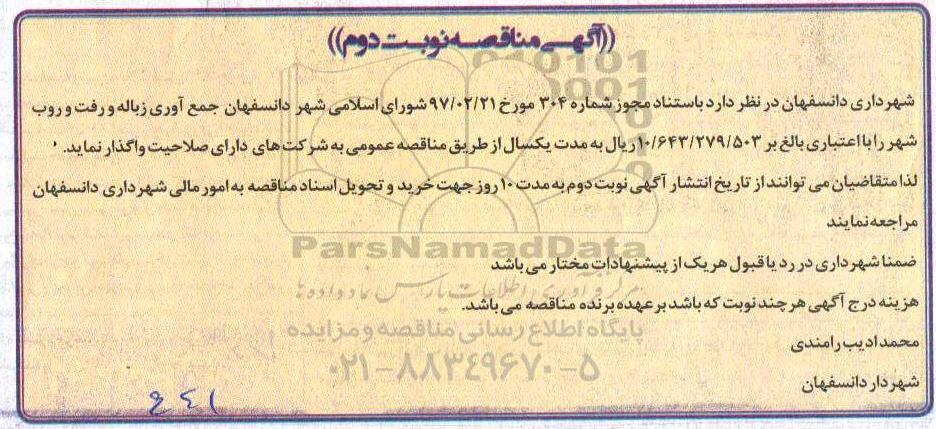 ((آگهی مناقصه نوبت دوم))
شهرداری دانسفهان در نظر دارد باستناد مجوز شماره ۳۰۴ مورخ ۹۷/۰۲/۲۱ شورای اسلامی شهر دانسفهان جمع آوری زباله و رفت و روب
شهر را با اعتباری بالغ بر ۱۰/۶۴۳/۲۷۹/۵۰۳ ریال به مدت یکسال از طریق مناقصه عمومی به شرکت های دارای صلاحیت واگذار نماید.
لذا متقاضیان می توانند از تاریخ انتشار آگهی نوبت دوم به مدت ۱۰ روز جهت خرید و تحویل اسناد مناقصه به امور مالی شهرداری دانسفهان
مراجعه نمایند
ParsNamadData
ضمنا شهرداری در رد یا قبول هر یک از پیشنهادات مختار می باشد
هزینه درج آگهی هر چند نوبت که باشد بر عهده برنده مناقصه می باشد.
پایگاه اطلاع رسانی مناقصه و مزایده
محمد ادیب رامندی
۰۲۱-۸۸۳۴۹۶۷۰-۵
شهردار دانسفهان